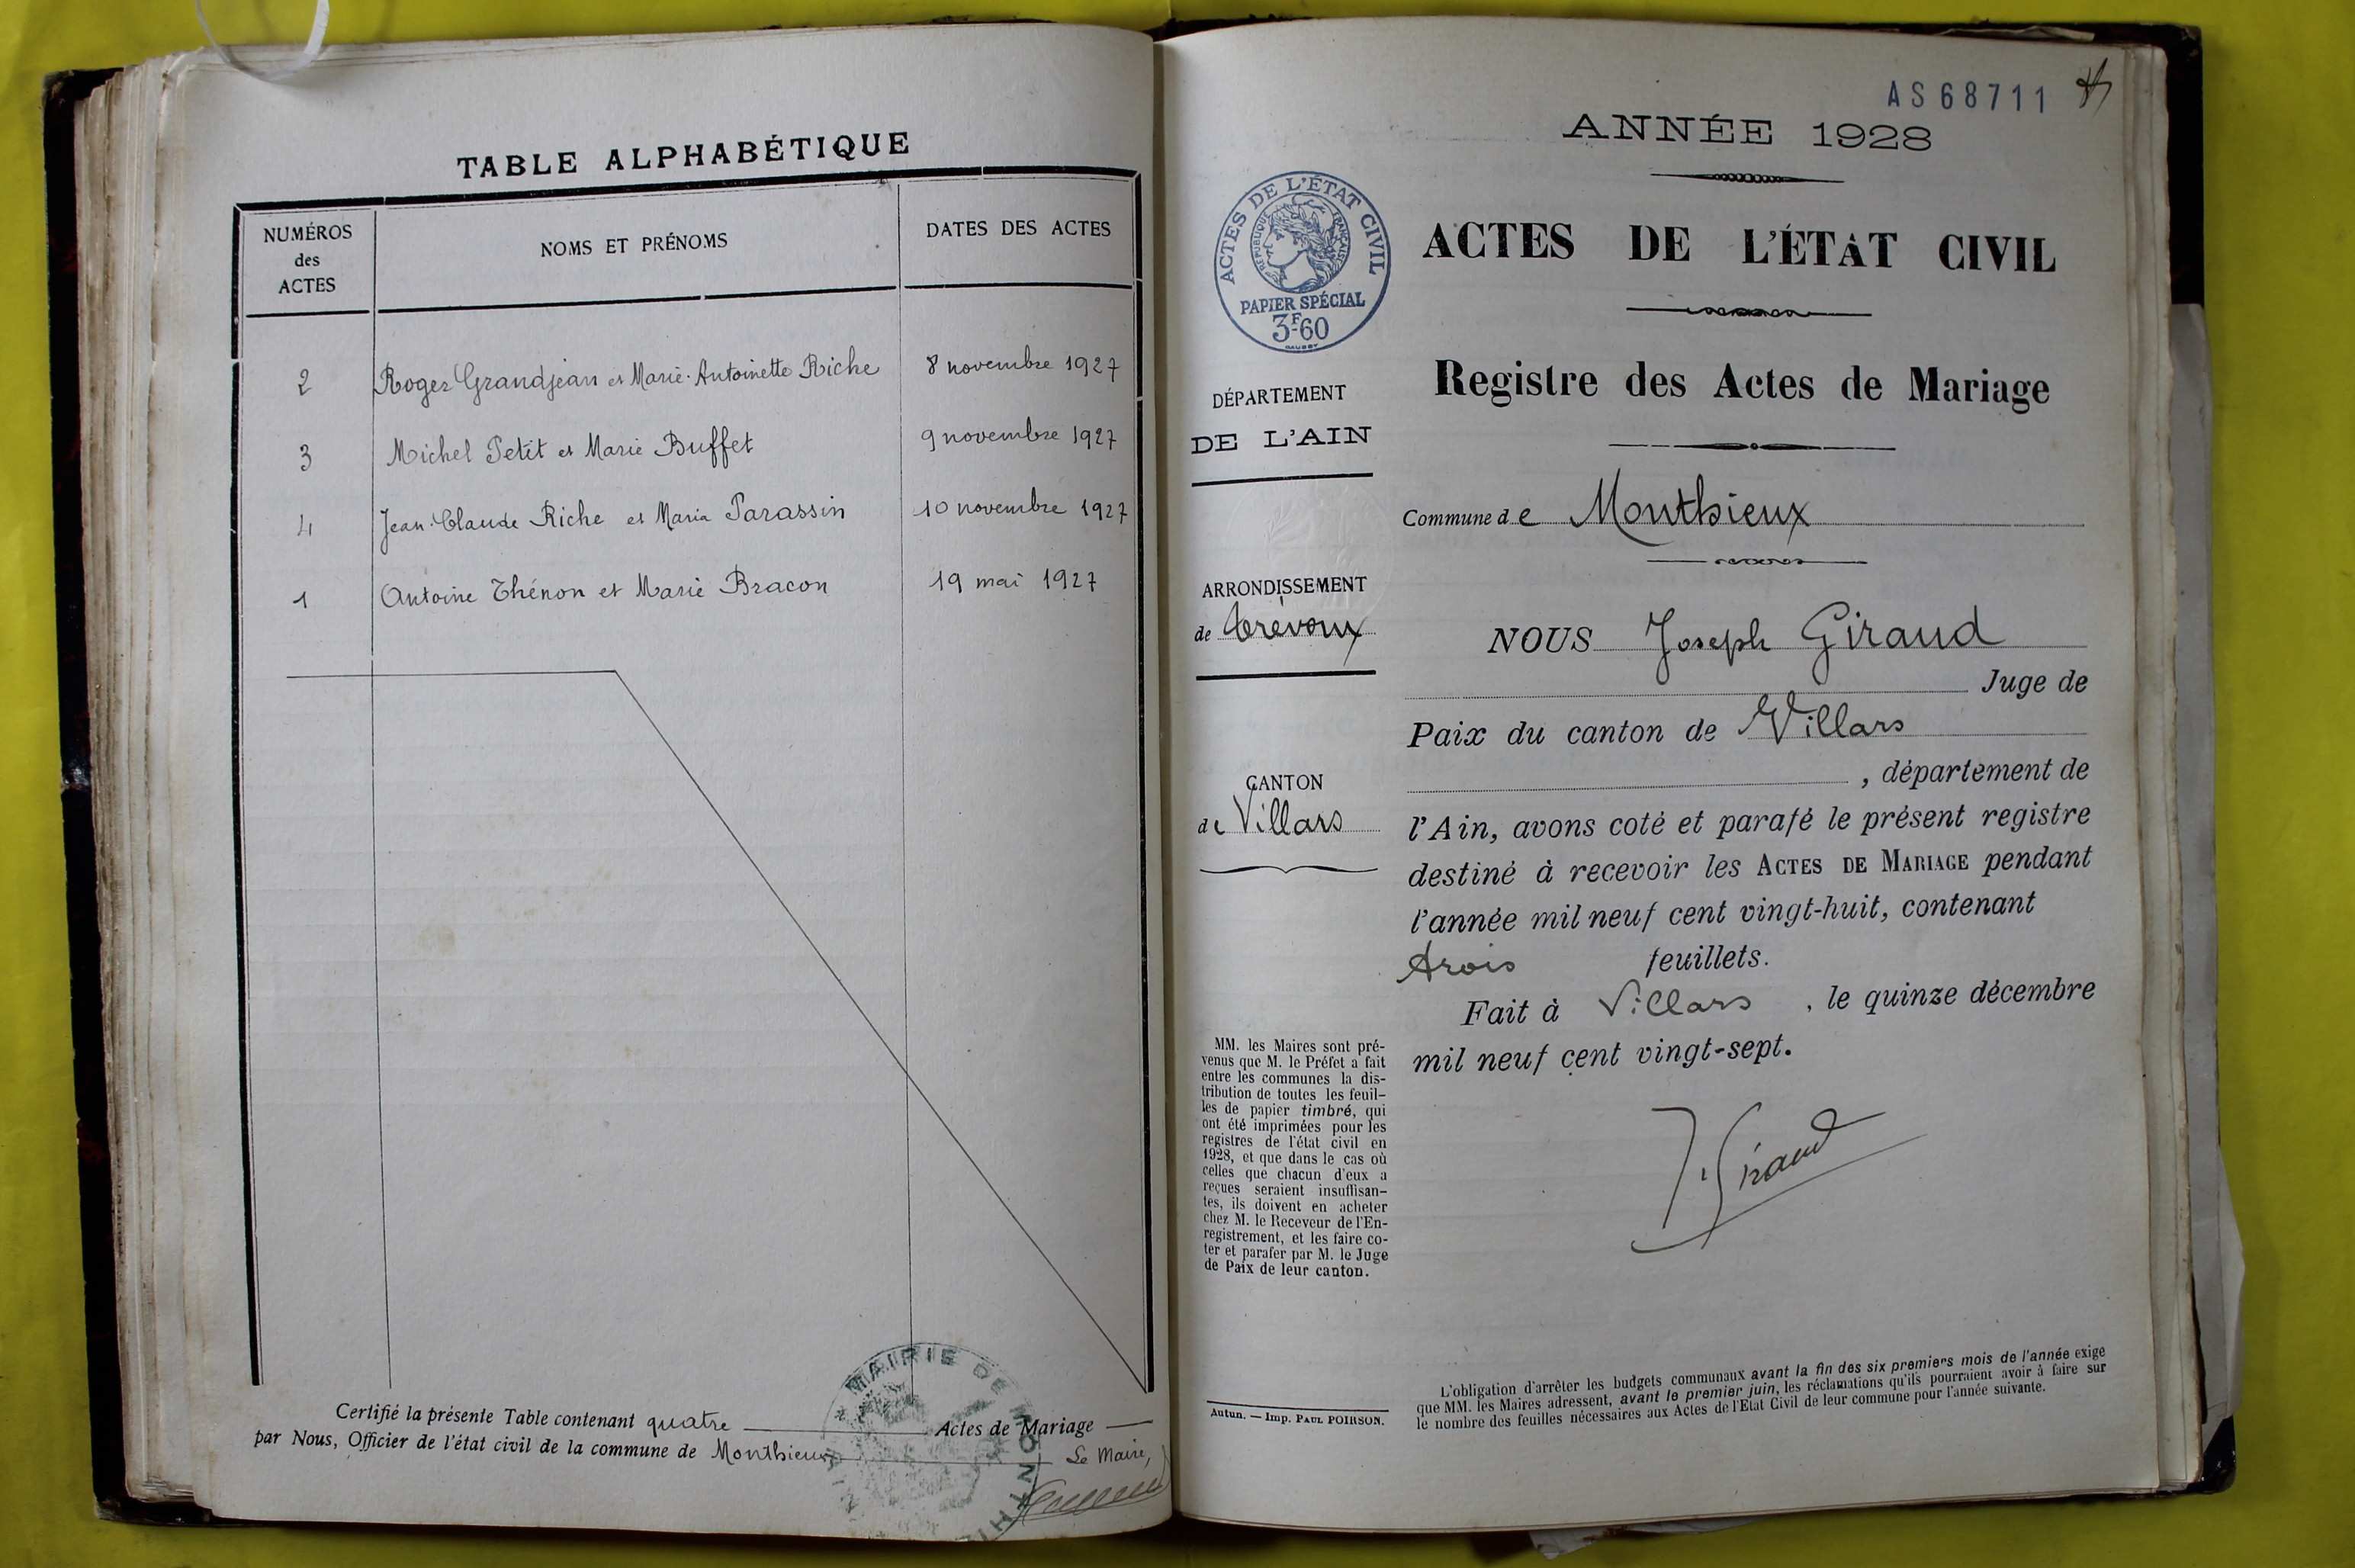 TABLE ALPHABÉTIQUE
NUMÉROS
des
ACTES
NOMS ET PRÉNOMS
DATES DES ACTES
2 Roger Grandjean et Marie-Antoinette Riche 8 novembre 1927
3 Michel Petit et Marie Buffet 9 novembre 1927
4 Jean-Claude Riche et Maria Parassin 10 novembre 1927
1 Antoine Thénon et Marie Bracon 19 mai 1927
Certifié la présente Table contenant quatre Actes de Mariage
par Nous, Officier de l'état civil de la commune de Monthieux
Le Maire,
MAIRIE DE MONTHI
AS68711
ANNÉE 1928
ACTES DE L'ÉTAT CIVIL
RÉPUBLIQUE FRANÇAISE
PAPIER SPÉCIAL
3F60
ACTES DE L'ÉTAT CIVIL
Registre des Actes de Mariage
DÉPARTEMENT
DE L'AIN
Commune de Monthieux
ARRONDISSEMENT
de Trévoux
CANTON
de Villars
NOUS Joseph Giraud
Juge de
Paix du canton de Villars
, département de
l'Ain, avons coté et parafé le présent registre
destiné à recevoir les ACTES DE MARIAGE pendant
l'année mil neuf cent vingt-huit, contenant
trois feuillets.
Fait à Villars, le quinze décembre
mil neuf cent vingt-sept.
J. Giraud
MM. les Maires sont pré-
venus que M. le Préfet a fait
entre les communes la dis-
tribution de toutes les feuil-
les de papier timbré, qui
ont été imprimées pour les
registres de l'état civil en
1928, et que dans le cas où
celles que chacun d'eux a
reçues seraient insuffisan-
tes, ils doivent en acheter
chez M. le Receveur de l'En-
registrement, et les faire co-
ter et parafer par M. le Juge
de Paix de leur canton.
Autun. — Imp. PAUL POIRSON.
L'obligation d'arrêter les budgets communaux avant la fin des six premiers mois de l'année exige
que MM. les Maires adressent, avant le premier juin, les réclamations qu'ils pourraient avoir à faire sur
le nombre des feuilles nécessaires aux Actes de l'Etat Civil de leur commune pour l'année suivante.